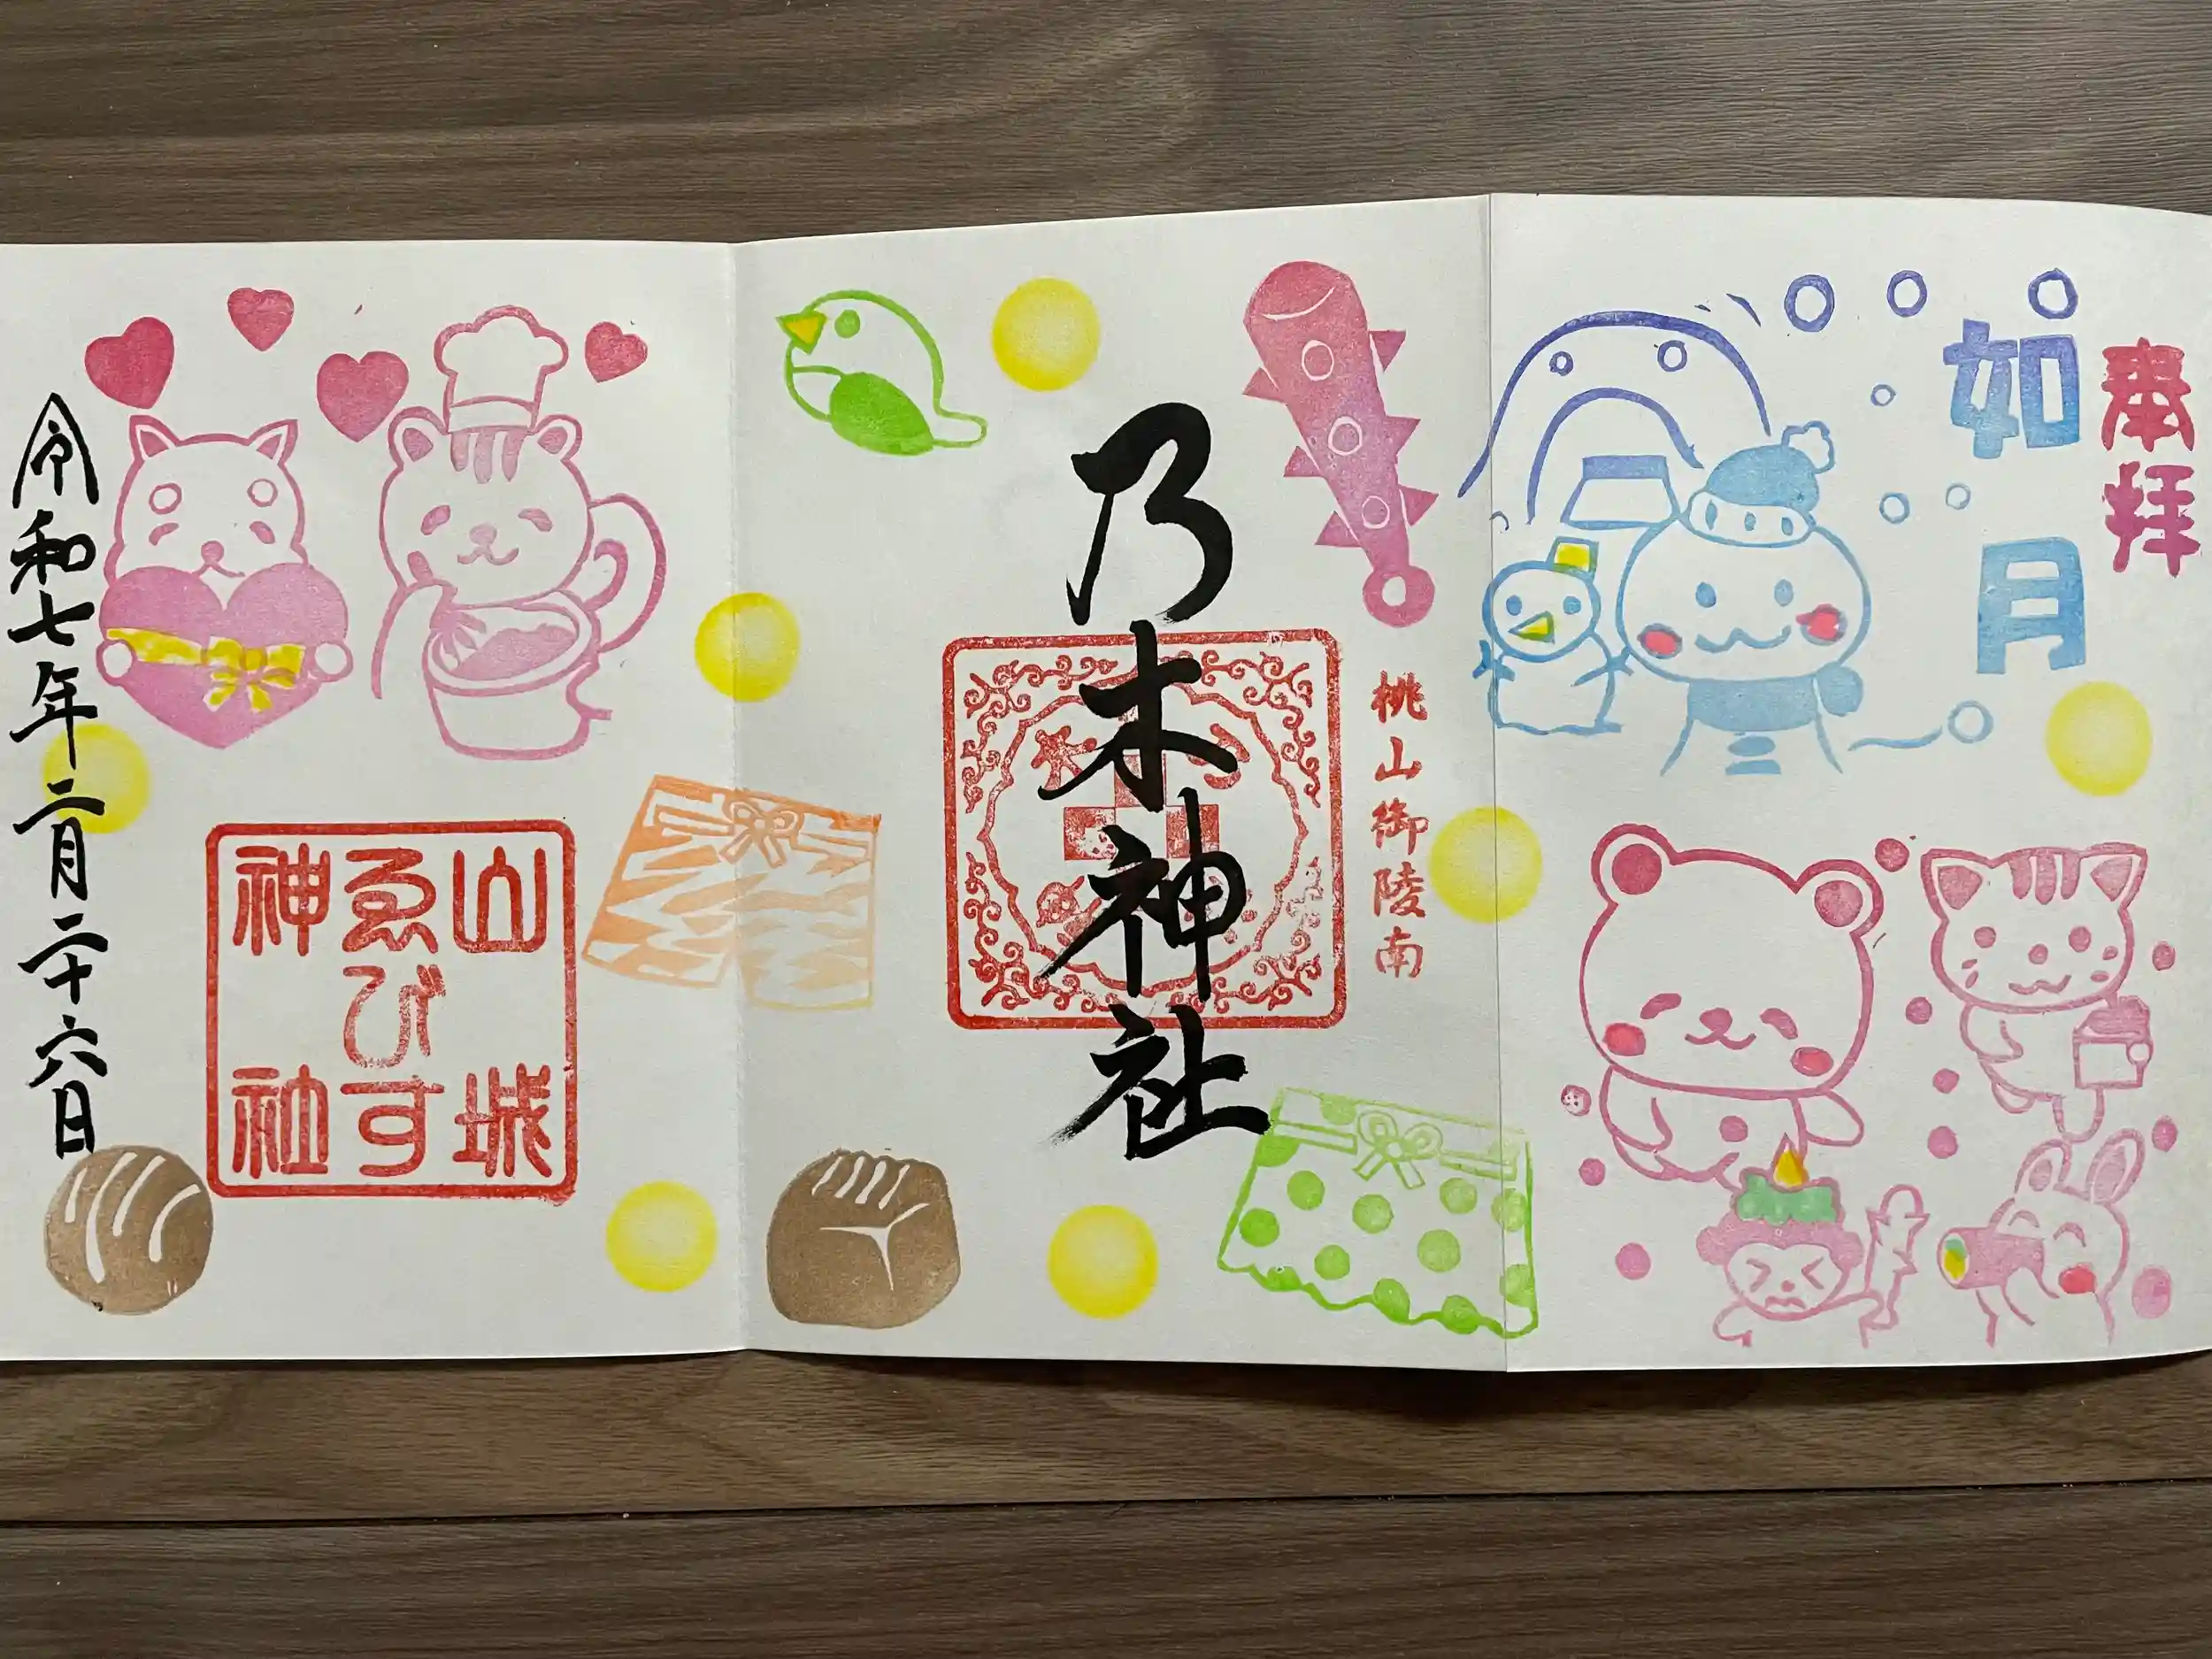 奉拝
如月
桃山御陵南
乃木神社
山城
ゑびす
神社
令和七年二月二十六日